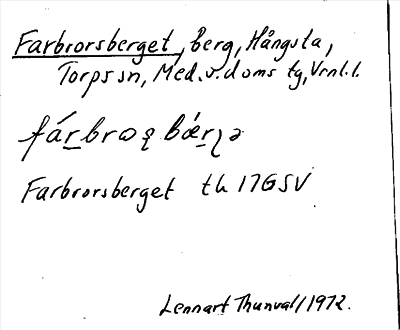 Farbrorsberget, berg, Hångsta,
Torps sn, Med.v.doms tg, Vrnl.l.
Farbrorsberget th 17G SV
Lennart Thunvall 1972.